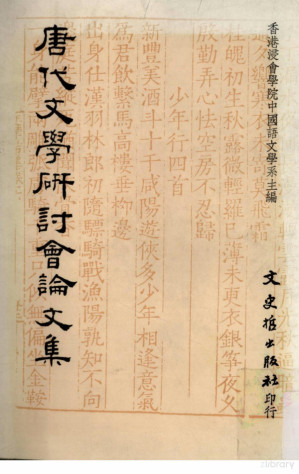 香港浸會學院中國語文學系主編
唐代文學研討會論文集
文史哲出版社印行
桂魄初生秋露微輕羅已薄未更衣銀箏夜久
殷勤弄心怯空房不忍歸
少年行四首
新豐美酒斗十千咸陽遊俠多少年相逢意氣
為君飲繫馬高樓垂柳邊
出身仕漢羽林郎初隨驃騎戰漁陽孰知不向